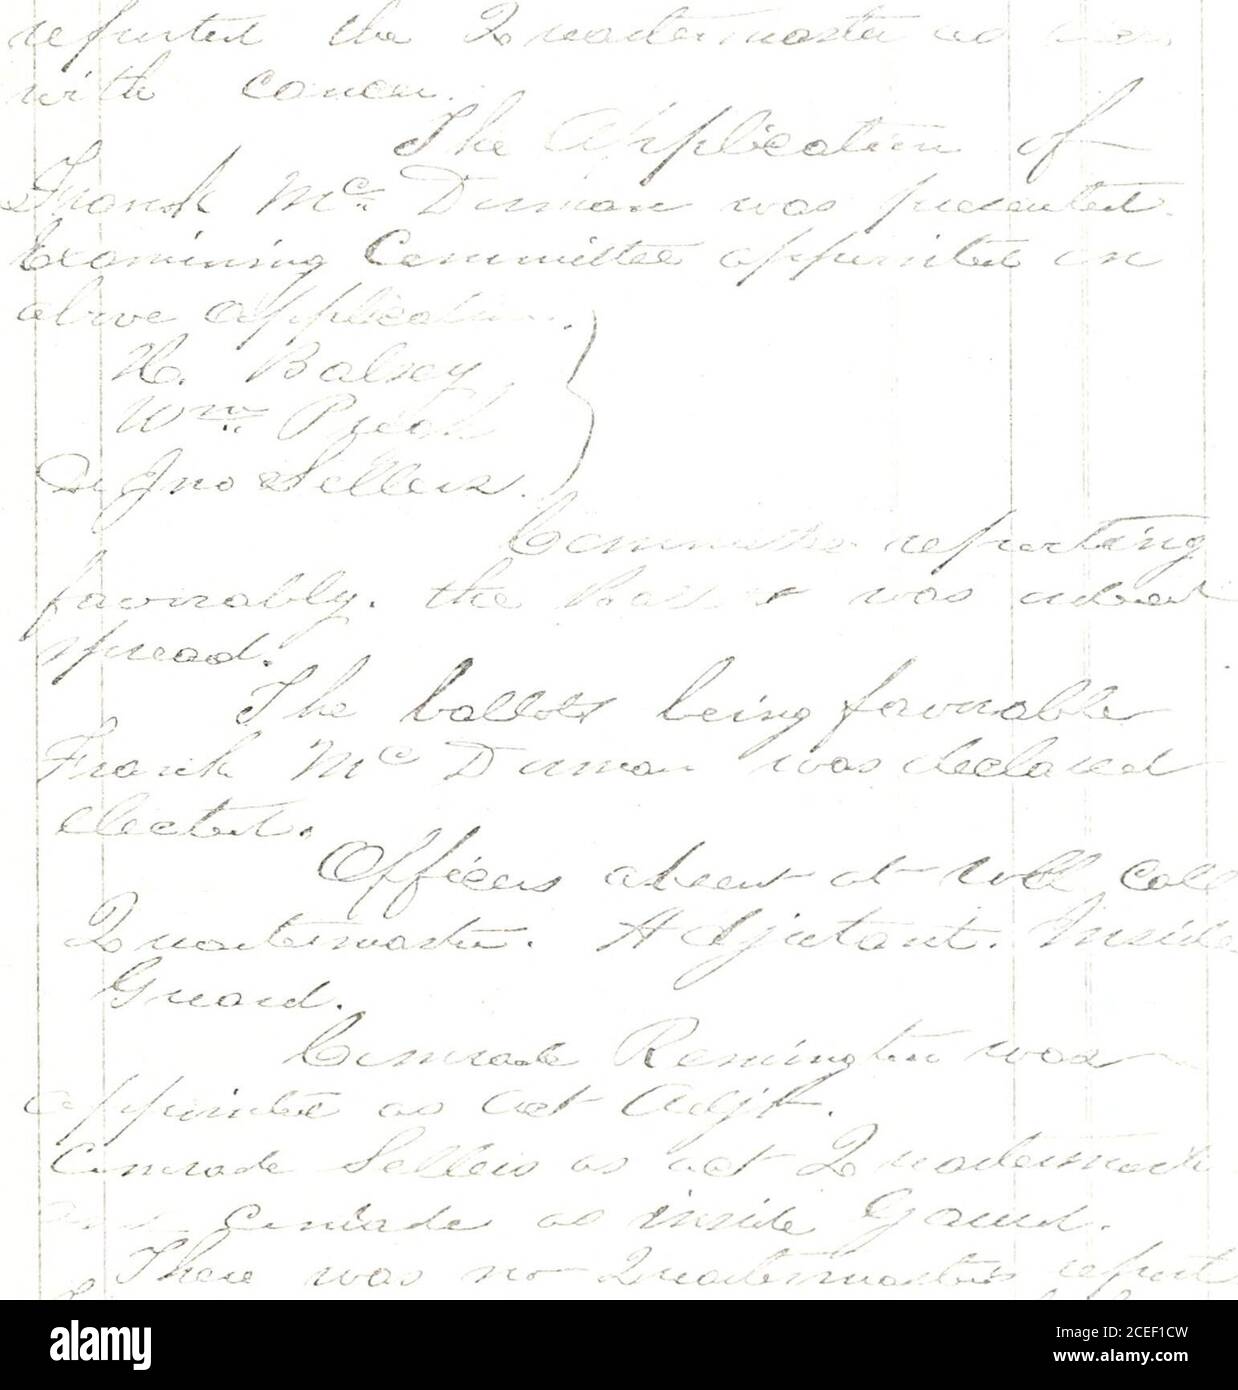 reported the Quartermaster as
with cancer.
The Application of
Frank Mc Durman was presented.
Examining Committee appointed on
above application.
H. Balsey
Wm
Dr Jno Sellers.
Committee reporting
favorably. the Ballot was
spread.
The ballots being favorable
Frank Mc Durman was declared
elected.
Officers absent at roll call
Quartermaster. Adjutant. Inside
Guard.
Comrade Remington was
appointed as act Adjt.
Comrade Sellers as act Quartermaster
Comrade as inside Guard.
There was no Quartermasters report
alamy
Image ID: 2CEF1CW
www.alamy.com